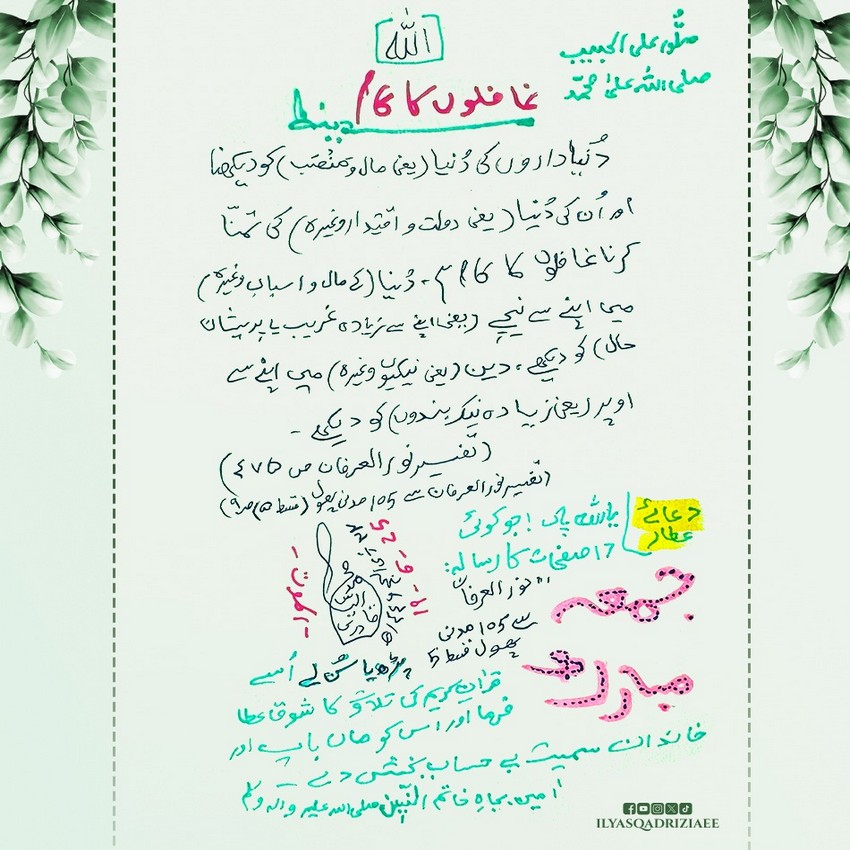 اللہ
صلُّوا علی الحبیب
صلی اللہُ علیٰ محمّد
غافلوں کا کام
دُنیاداروں کی دُنیا (یعنی مال و منصب) کو دیکھنا
اور اُن کی دُنیا (یعنی دولت و اقتِدار وغیرہ) کی تمنّا
کرنا غافلوں کا کام ہے، دُنیا (کے مال و اسباب وغیرہ)
میں اپنے سے نیچے (یعنی اپنے سے زیادہ غریب یا پریشان
حال) کو دیکھے، دین (یعنی نیکیوں وغیرہ) میں اپنے سے
اوپر (یعنی زیادہ نیک بندوں) کو دیکھے۔
(تفسیر نور العرفان ص ٤٧٥)
(تفسیر نور العرفان سے 105 مدنی پھول (قسط 5) ص 9)
دعائے
عطار
یا اللہ پاک! جو کوئی
17 صفحات کا رسالہ:
"نور العرفان
سے 105 مدنی
پھول قسط 5
پڑھ یا سُن لے اُسے
قرآنِ کریم کی تلاوت کا شوق عطا
فرما اور اس کو ماں باپ اور
خاندان سمیت بے حساب بخش دے۔
اٰمین بجاہِ خاتم النّبیّن صلی اللہ علیہ واٰلہٖ وسلم
الموت
محمد
الیاس
قادری
جمعہ
مبارک
ILYASQADRIZIAEE